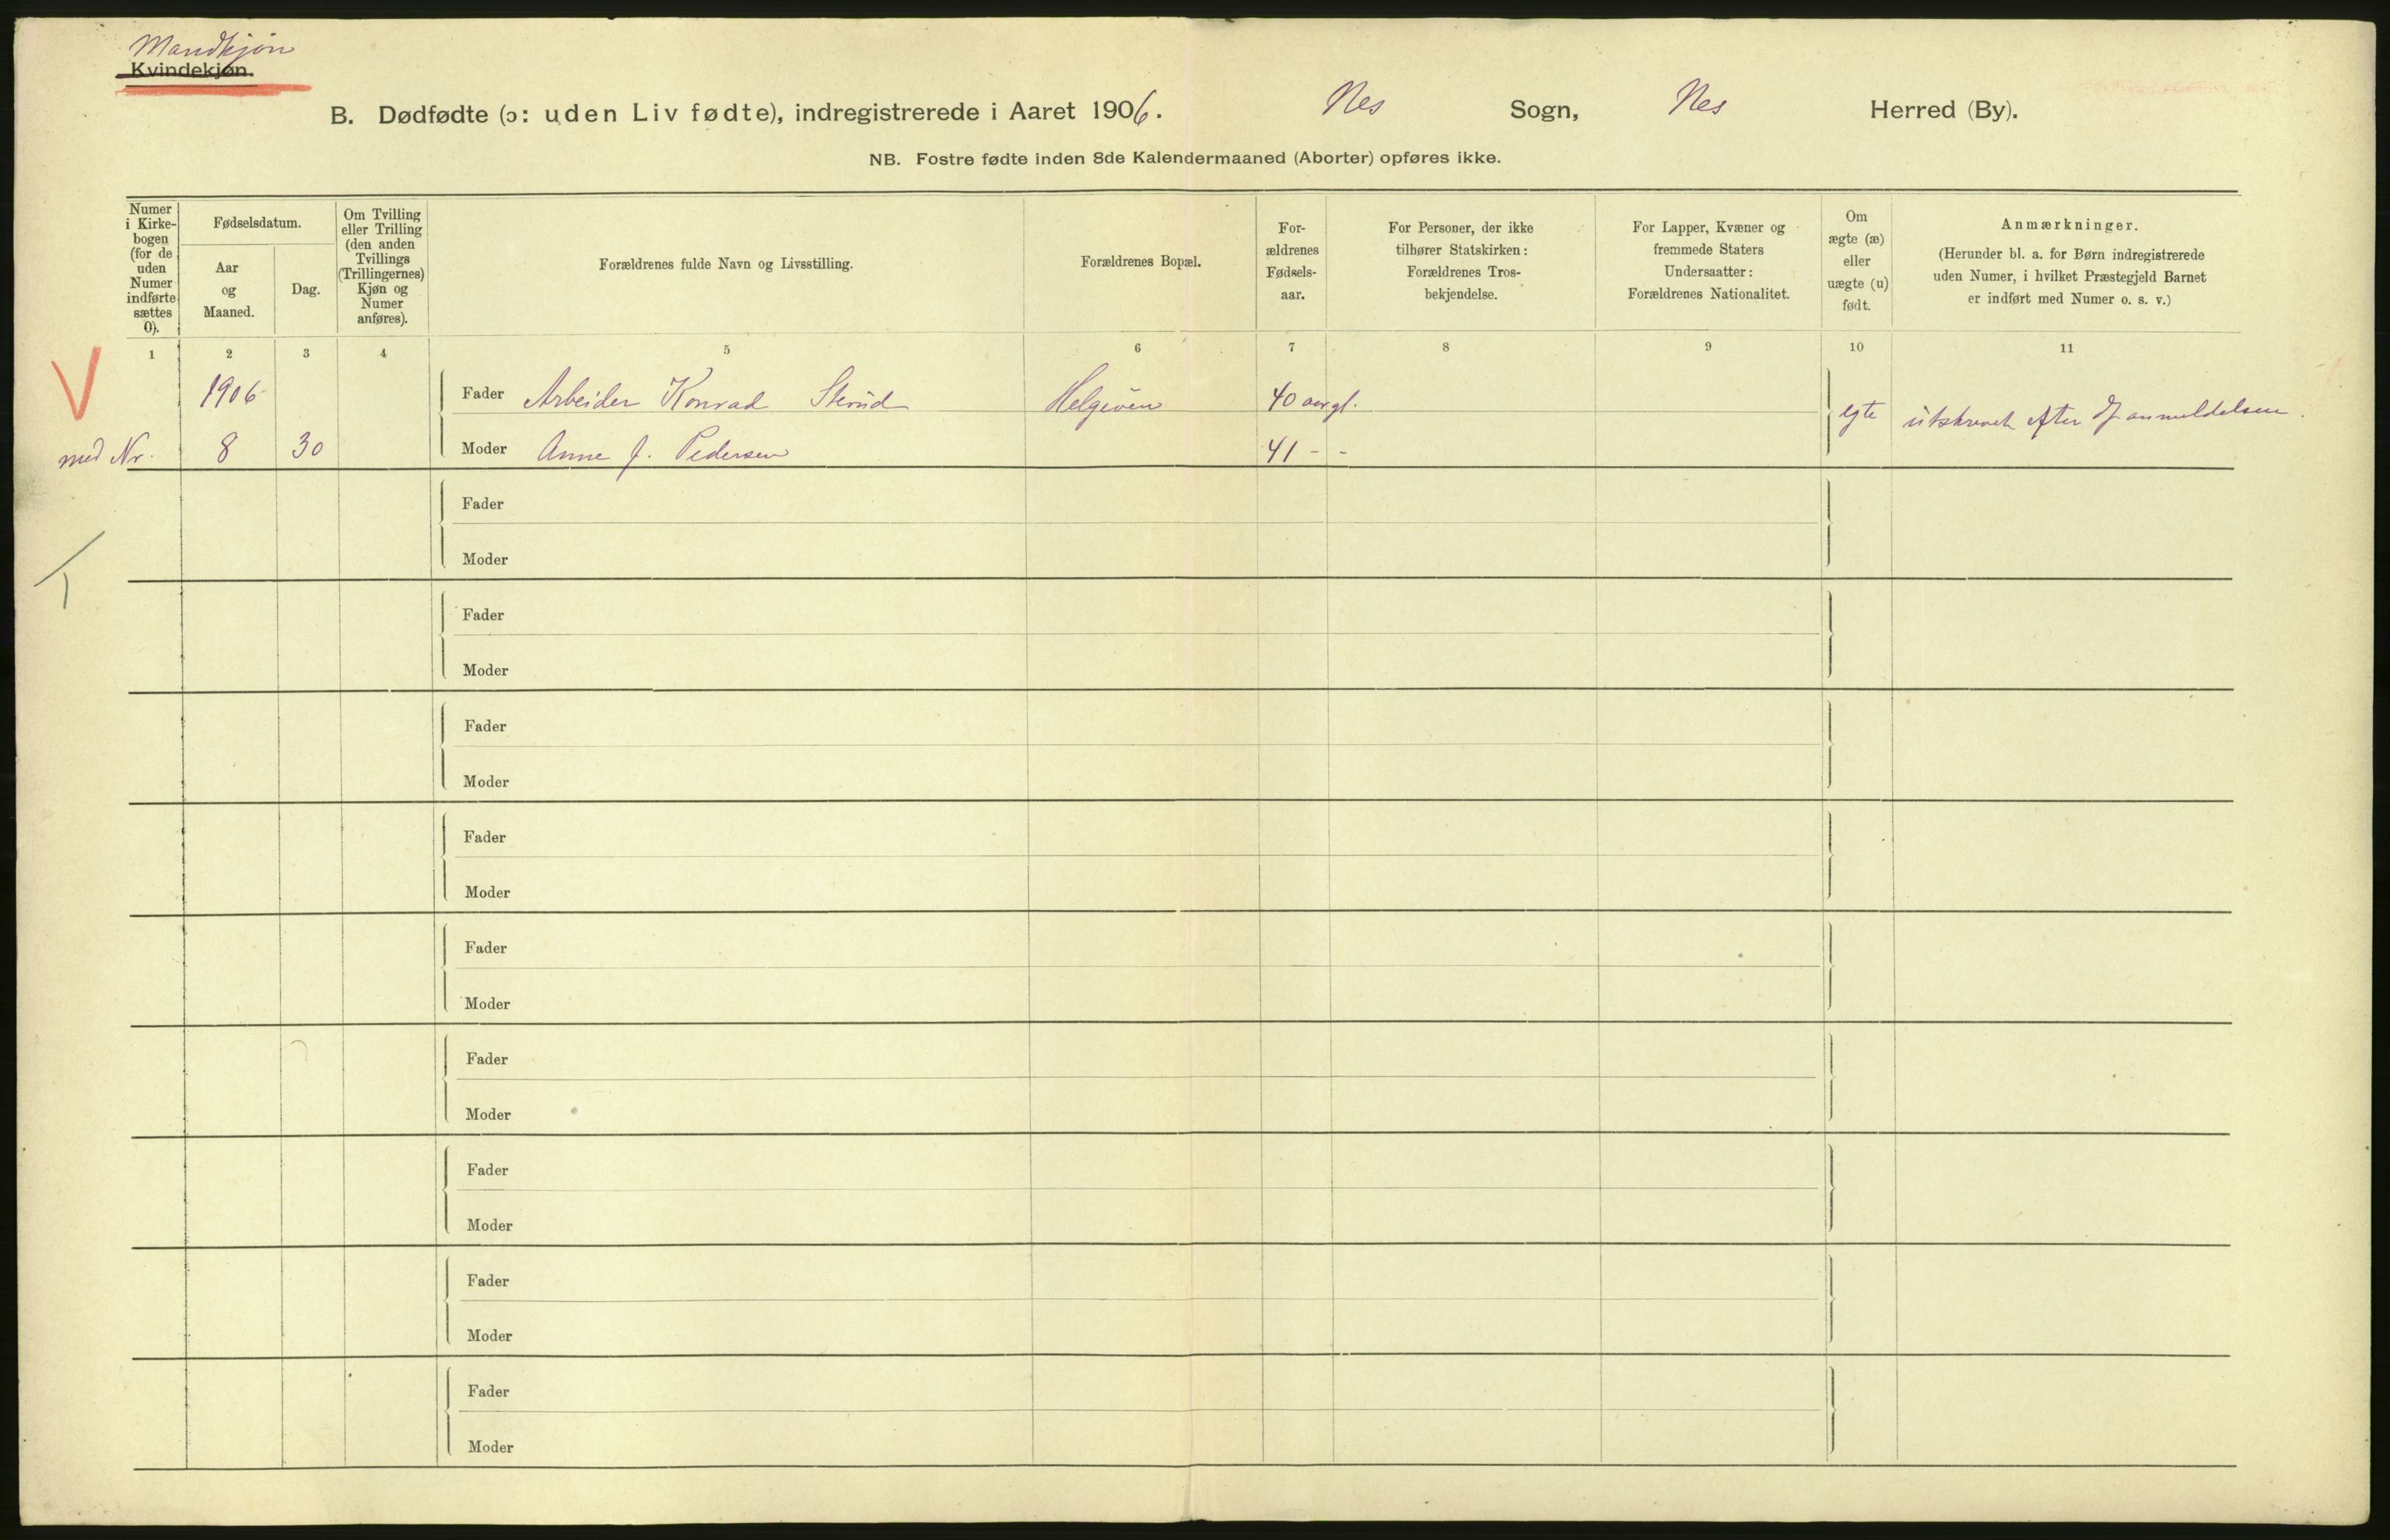 Mandkjøn
Kvindekjøn.
B. Dødfødte (ɔ: uden Liv fødte), indregistrerede i Aaret 1906. Nes Sogn, Nes Herred (By).
NB. Fostre fødte inden 8de Kalendermaaned (Aborter) opføres ikke.
Numer
i Kirke-
bogen
(for de
uden
Numer
indførte
sættes
0).
Fødselsdatum.
Aar
og
Maaned.
Dag.
Om Tvilling
eller Trilling
(den anden
Tvillings
(Trillingernes)
Kjøn og
Numer
anføres).
Forældrenes fulde Navn og Livsstilling.
Forældrenes Bopæl.
For-
ældrenes
Fødsels-
aar.
For Personer, der ikke
tilhører Statskirken:
Forældrenes Tros-
bekjendelse.
For Lapper, Kvæner og
fremmede Staters
Undersaatter:
Forældrenes Nationalitet.
Om
ægte (æ)
eller
uægte (u)
født.
Anmærkninger.
(Herunder bl. a. for Børn indregistrerede
uden Numer, i hvilket Præstegjeld Barnet
er indført med Numer o. s. v.)
1 2 3 4 5 6 7 8 9 10 11
V 1906 Fader Arbeider Konrad Sterud 40 aar gl. egte utskrevet efter anmeldelsen.
med Nr. 8 30 Moder Anne J. Pedersen 41 - -
Fader
Moder
Fader
Moder
Fader
Moder
Fader
Moder
Fader
Moder
Fader
Moder
Fader
Moder
Fader
Moder
Fader
Moder